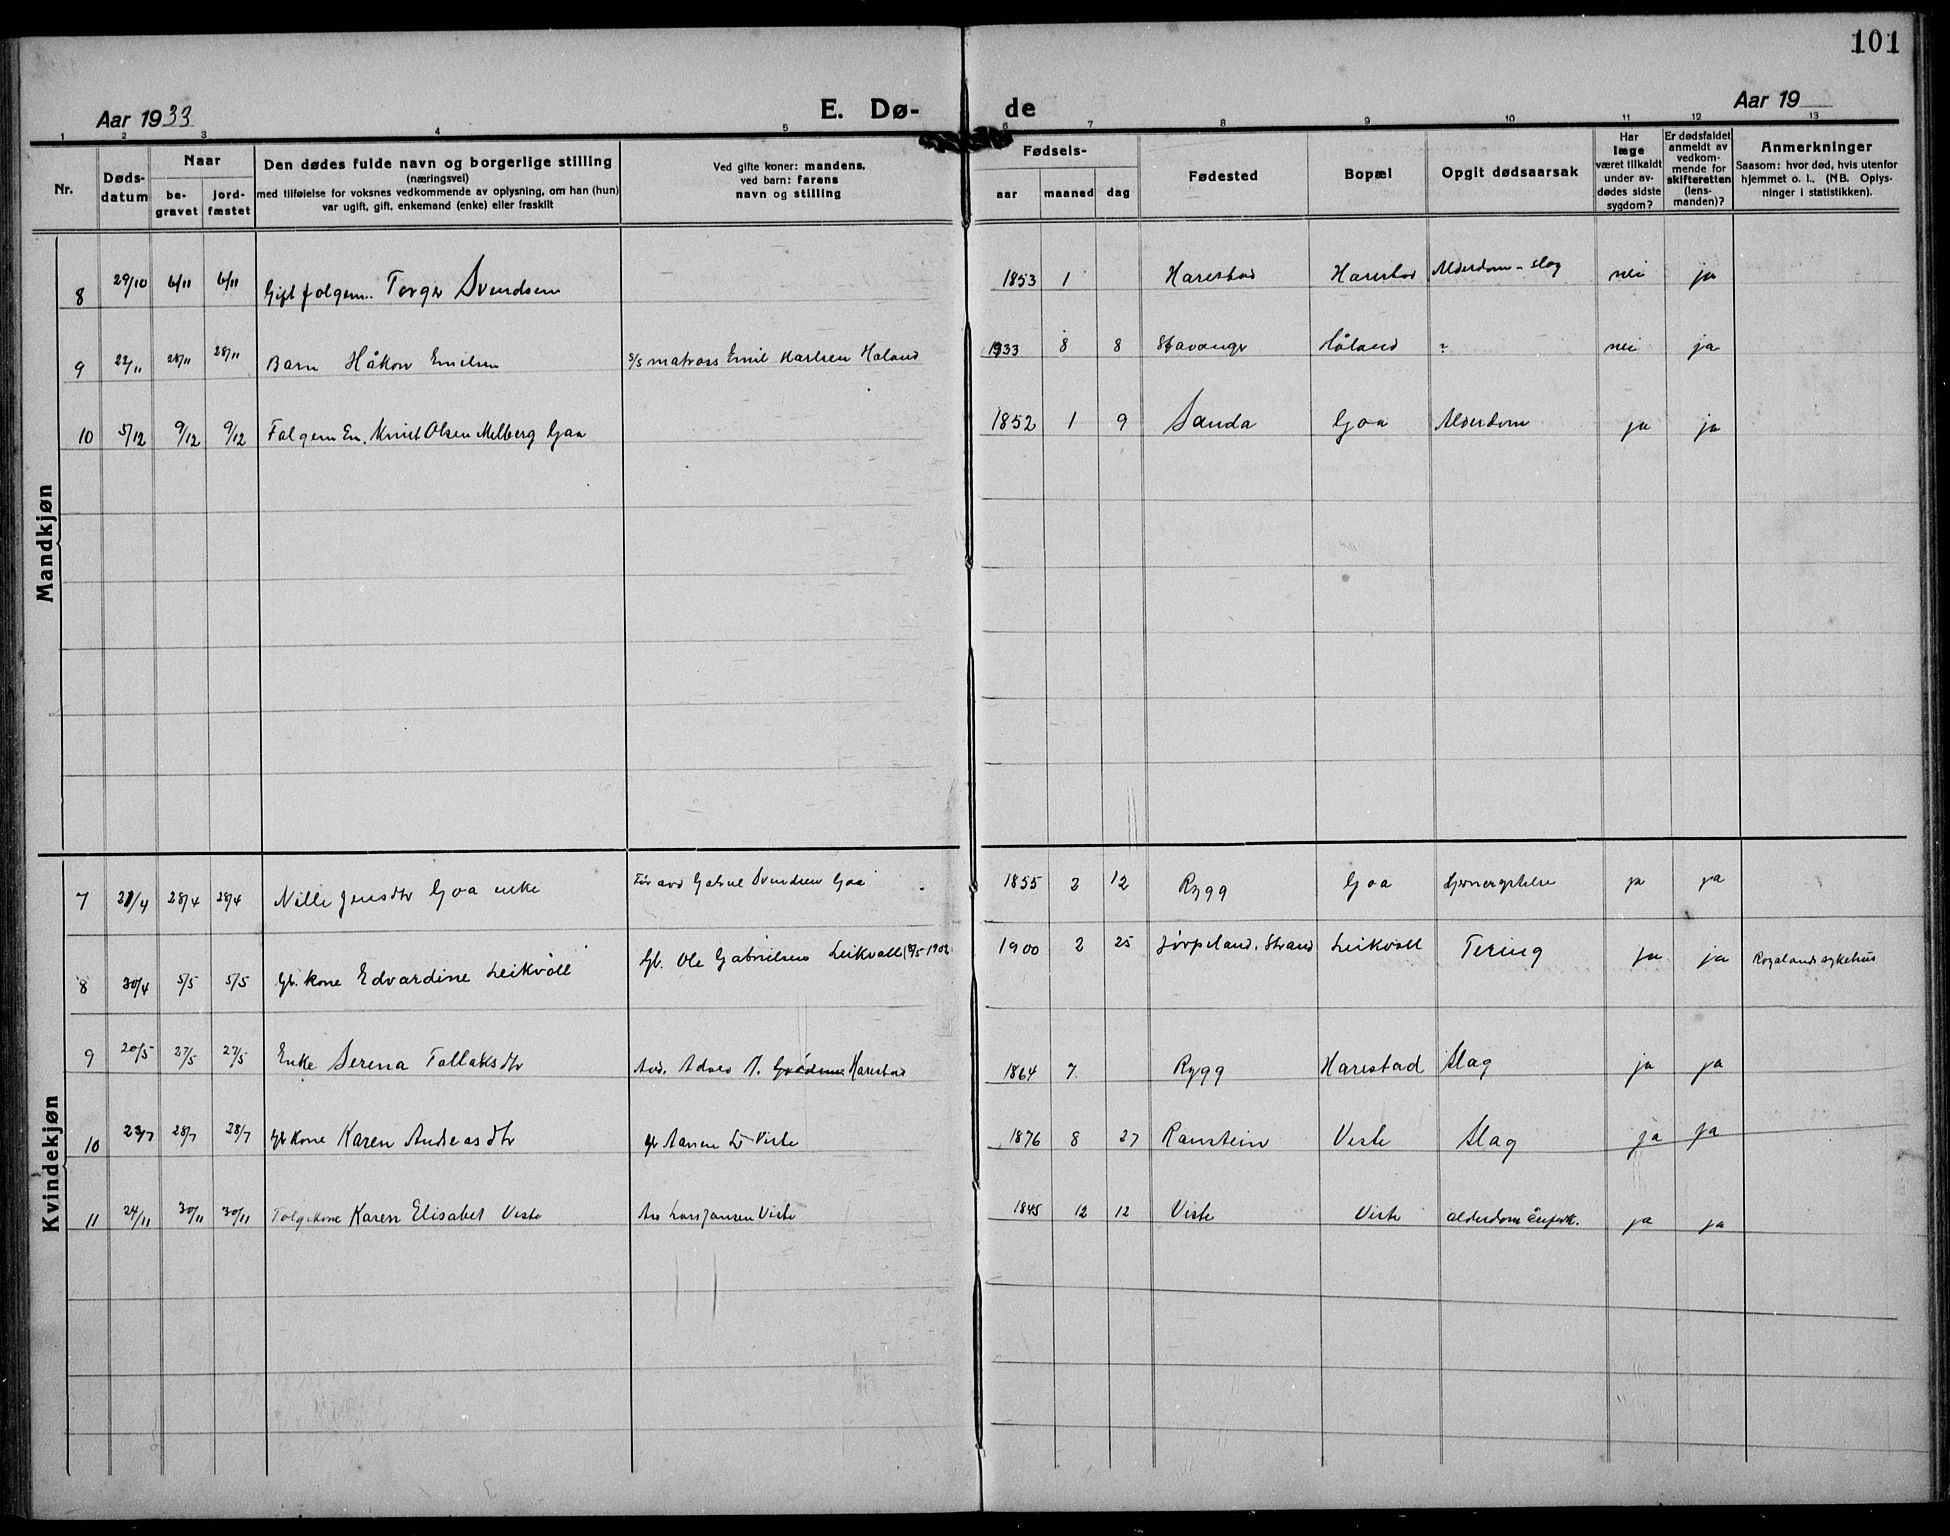 101
Aar 1933 E. Dø- de Aar 19
1 2 3 4 5 6 7 8 9 10 11 12 13
Nr. Døds-datum Naar be-gravet jord-fæstet Den dødes fulde navn og borgerlige stilling (næringsvei) med tilføielse for voksnes vedkommende av oplysning, om han (hun) var ugift, gift, enkemand (enke) eller fraskilt Ved gifte koner: mandens, ved barn: farens navn og stilling Fødsels- aar maaned dag Fødested Bopæl Opgit dødsaarsak Har læge været tilkaldt under av-dødes sidste sygdom? Er dødsfaldet anmeldt av vedkom-mende for skifteretten (lens-manden)? Anmerkninger Saasom: hvor død, hvis utenfor hjemmet o. l., (NB. Oplys-ninger i statistikken).
Mandkjøn
8 29/10 6/11 6/11 Gift folgem. Torger Svendsen 1853 1 Harestad Harestad Alderdom - slag nei ja
9 22/11 28/11 28/11 Barn Håkon Emilsen s/s matros Emil Karlsen Haland 1933 8 8 Stavanger Håland ? nei ja
10 5/12 9/12 9/12 Folgem En. Knut Olsen Melberg Goa 1852 1 9 Sauda Goa Alderdom ja ja
Kvindekjøn
7 21/4 28/4 28/4 Nilli Jensdtr Goa enke Før avd Gabriel Svendsen Goa 1855 2 12 Rygg Goa ja ja
8 30/4 5/5 5/5 Gb. kone Edvardine Leikvoll Gb. Ole Gabrielsen Leikvoll (8/5-1902) 1900 2 25 Jørpeland, Strand Leikvoll Tering ja ja Rogalands sykehus
9 20/5 27/5 27/5 Enke Serena Tollaksdtr Avd. A. Harestad 1864 7 Rygg Harestad Slag ja ja
10 23/7 28/7 28/7 Gb kone Karen Andreasdtr Viste 1876 8 27 Ramstein Viste Slag ja ja
11 24/11 30/11 30/11 Folgekone Karen Elisabet Viste Lars Jansen Viste 1845 12 12 Viste Viste alderdom ja ja